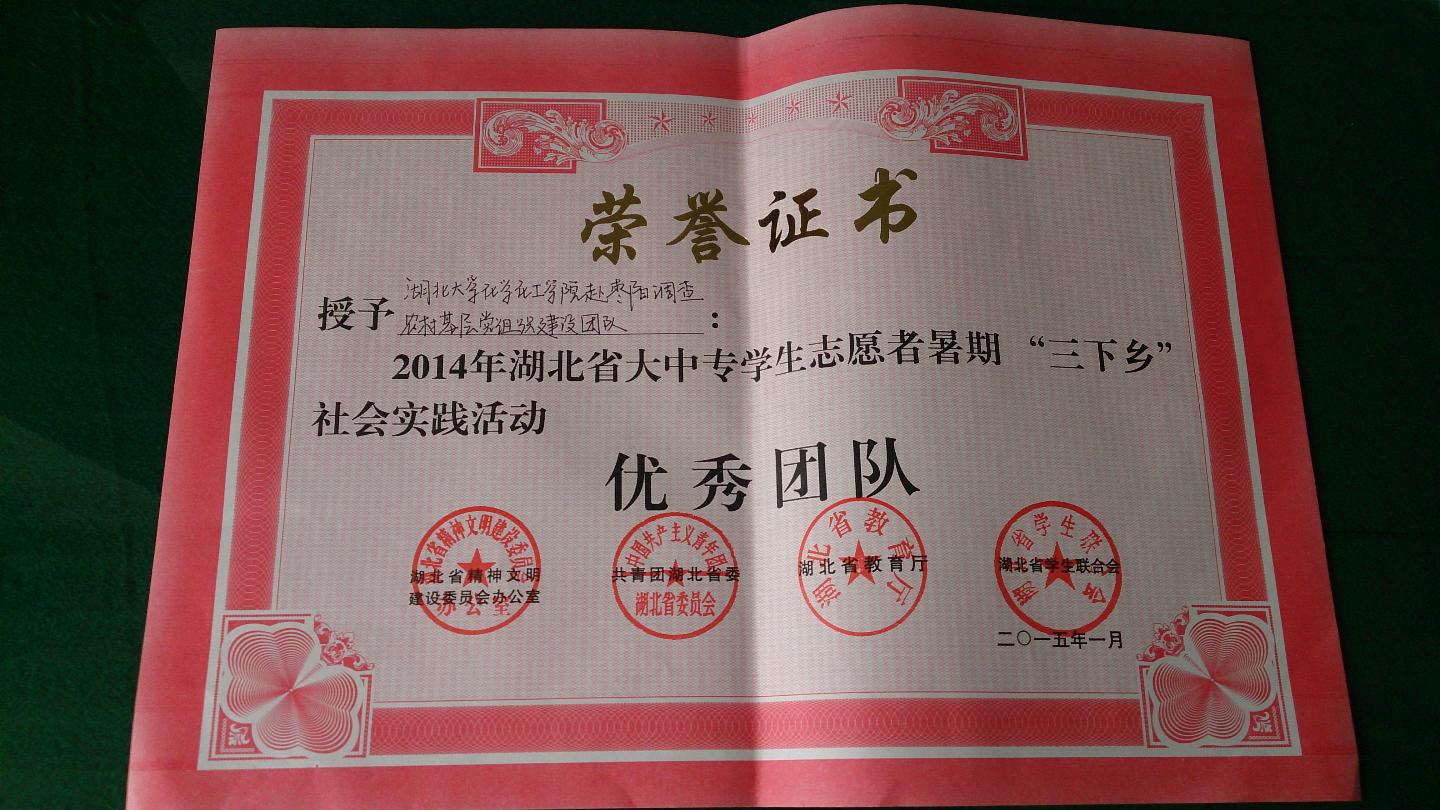 荣誉证书
湖北大学化学化工学院赴枣阳调查
授予农村基层党组织建设团队：
2014年湖北省大中专学生志愿者暑期“三下乡”
社会实践活动
优秀团队
湖北省精神文明建设委员会办公室
中国共产主义青年团湖北省委员会
湖北省教育厅
湖北省学生联合会
湖北省精神文明
建设委员会办公室
共青团湖北省委
湖北省教育厅
湖北省学生联合会
二〇一五年一月